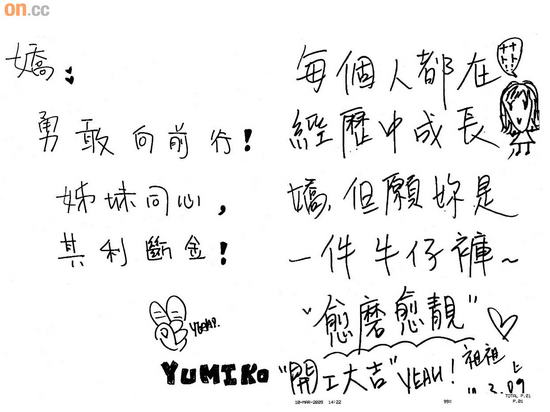 on.cc
嬌:
勇敢向前行!
姊妹同心,
其利斷金!
YEAH!
YUMIKO
每個人都在
經歷中成長
嬌, 但願妳是
一件牛仔褲~
"愈磨愈靚"
"開工大吉" YEAH! 祖祖
in 2.09
10-MAR-2009 14:22
99%
TOTAL P.01
P.01